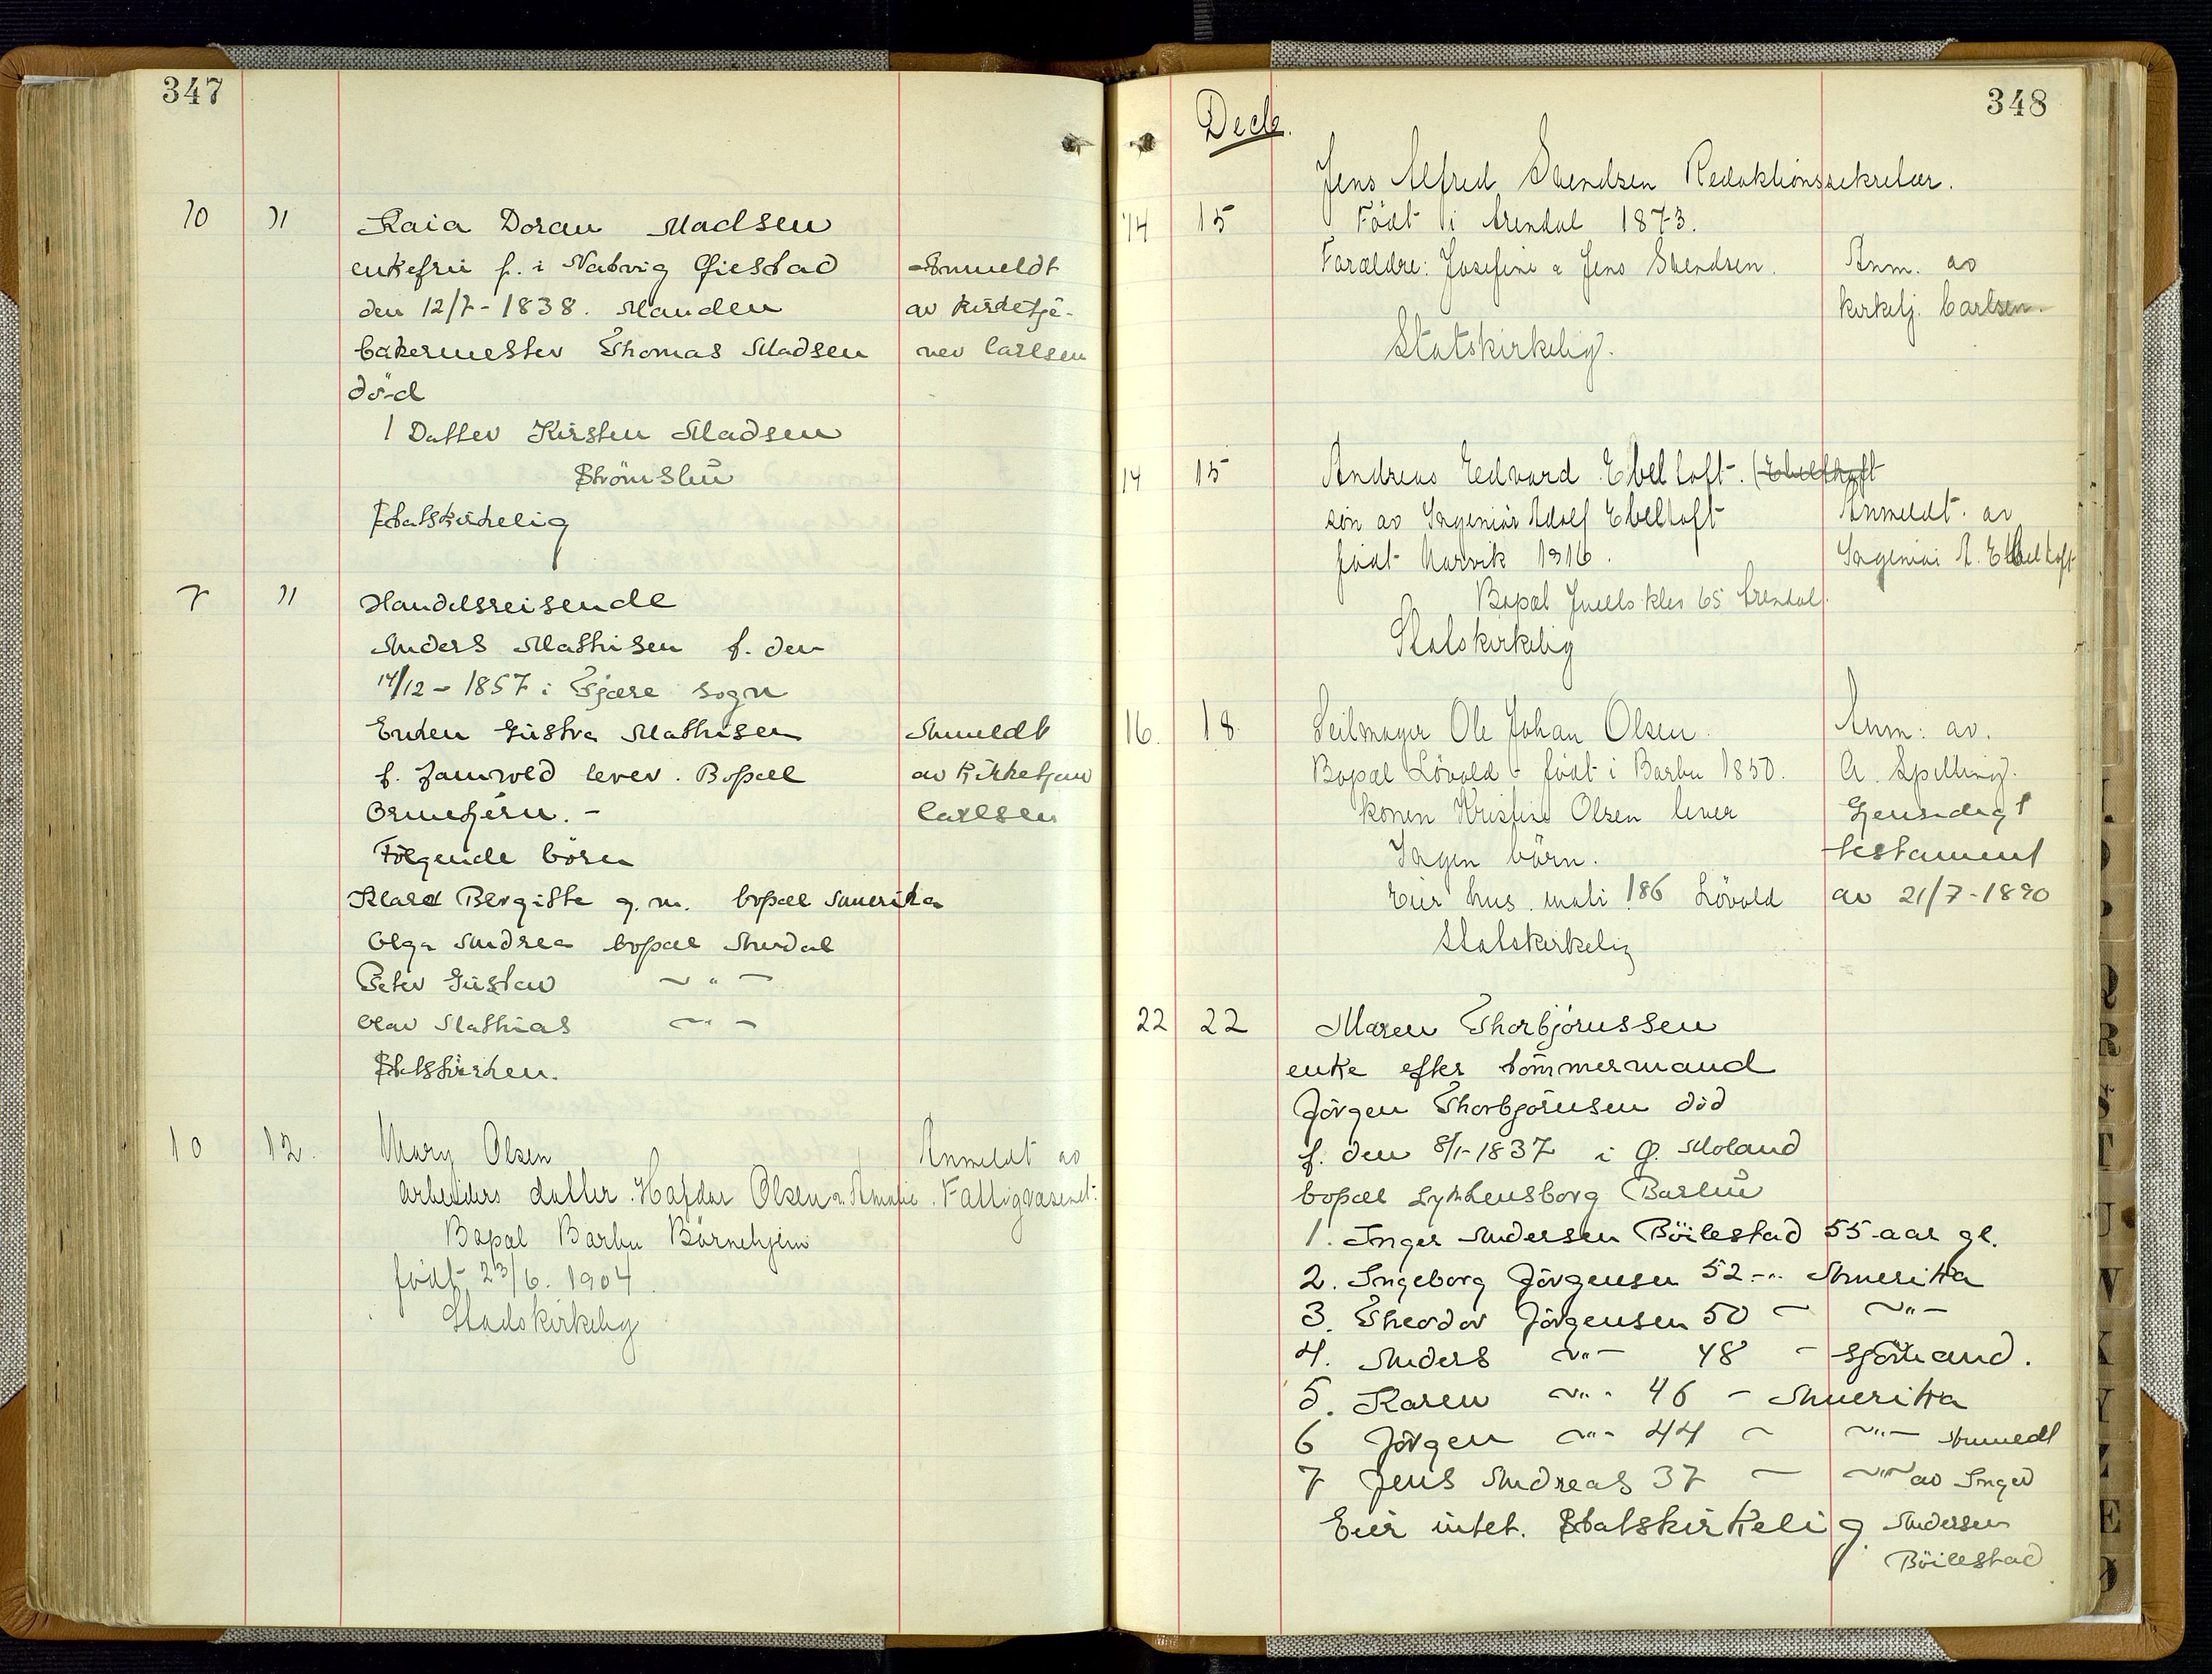 347
10 11 Kaia Doran Madsen
enkefru f. i Natvig Øiestad Anmeldt
den 12/7-1838. Manden av kirketje-
bakermester Thomas Madsen ner Carlsen
död
1 Datter Kirsten Madsen
Strömsbu
Statskirkelig
7 11 Handelsreisende
Anders Mathisen f. den
14/12-1857 i Fjære sogn
Enken Gustva Mathisen Anmeldt
f. lever. Bopæl av Kirketjener
Carlsen
Følgende börn
Klara Bergitte g. m. bopæl Amerika
Olga Andrea bopæl Arendal
Peter Gustav ~ " ~
Olav Mathias ~ " ~
Statskirken.
10 12. Mary Olsen Anmeldt av
arbeiders datter. Hafdar Olsen & Amalie. Fattigvæsenet.
Bopæl Barbu Börnehjem
født 23/6. 1904
Stadskirkelig
348
Decb.
Jens Alfred Svendsen Redaktionssekretær.
14 15 Født i Arendal 1873.
Forældre: Josefine & Jens Svendsen. Anm. av
kirketj. Carlsen.
Statskirkelig.
14 15 Andreas Edvard Ebeltoft. (Ebelthoft
søn av Ingeniør Adolf Ebeltoft Anmeldt. av
født Narvik 1916. Ingeniør A. Ebeltoft
Bopæl Juells kles 65 Arendal.
Statskirkelig
16. 18 Seilmager Ole Johan Olsen. Anm: av.
Bopæl Løvold - født i Barbu 1850. A. Spilling.
konen Kristine Olsen lever Gjensidigt
Ingen børn. testament
Eier hus. matr. 186 Lövold av 21/7-1890
Statskirkelig
22 22 Maren Thorbjörnssen
enke efter tömmermand
Jörgen Thorbjörnsen död
f. den 8/1-1837 i Ø. Moland
bopæl Lykkensborg Barbu
1. Inger Andersen Böilestad 55 aar gl.
2. Ingeborg Jörgensen 52 -"- Amerika
3. Theodor Jörgensen 50 ~ ~"~
4. Anders ~"~ 48 - sjömand.
5. Karen ~"~ 46 - Amerika
6 Jörgen ~"~ 44 ~ ~"~ Anmeldt
7 Jens Andreas 37 ~ ~"~ av Inger
Eier intet. Statskirkelig Andersen
Böilestad